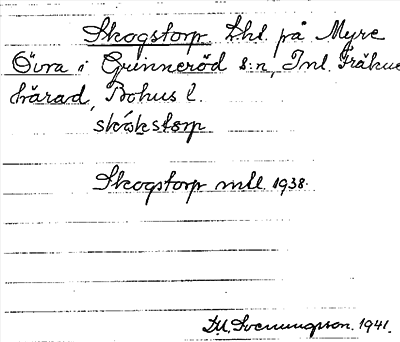 Skogstorp. Lht. på Myre
Övra i Grinneröd s:n, Inl. Fräkne
härad, Bohus l.
skókstorp
Skogstorp mtl 1938.
D.U. Svenungsson. 1941.